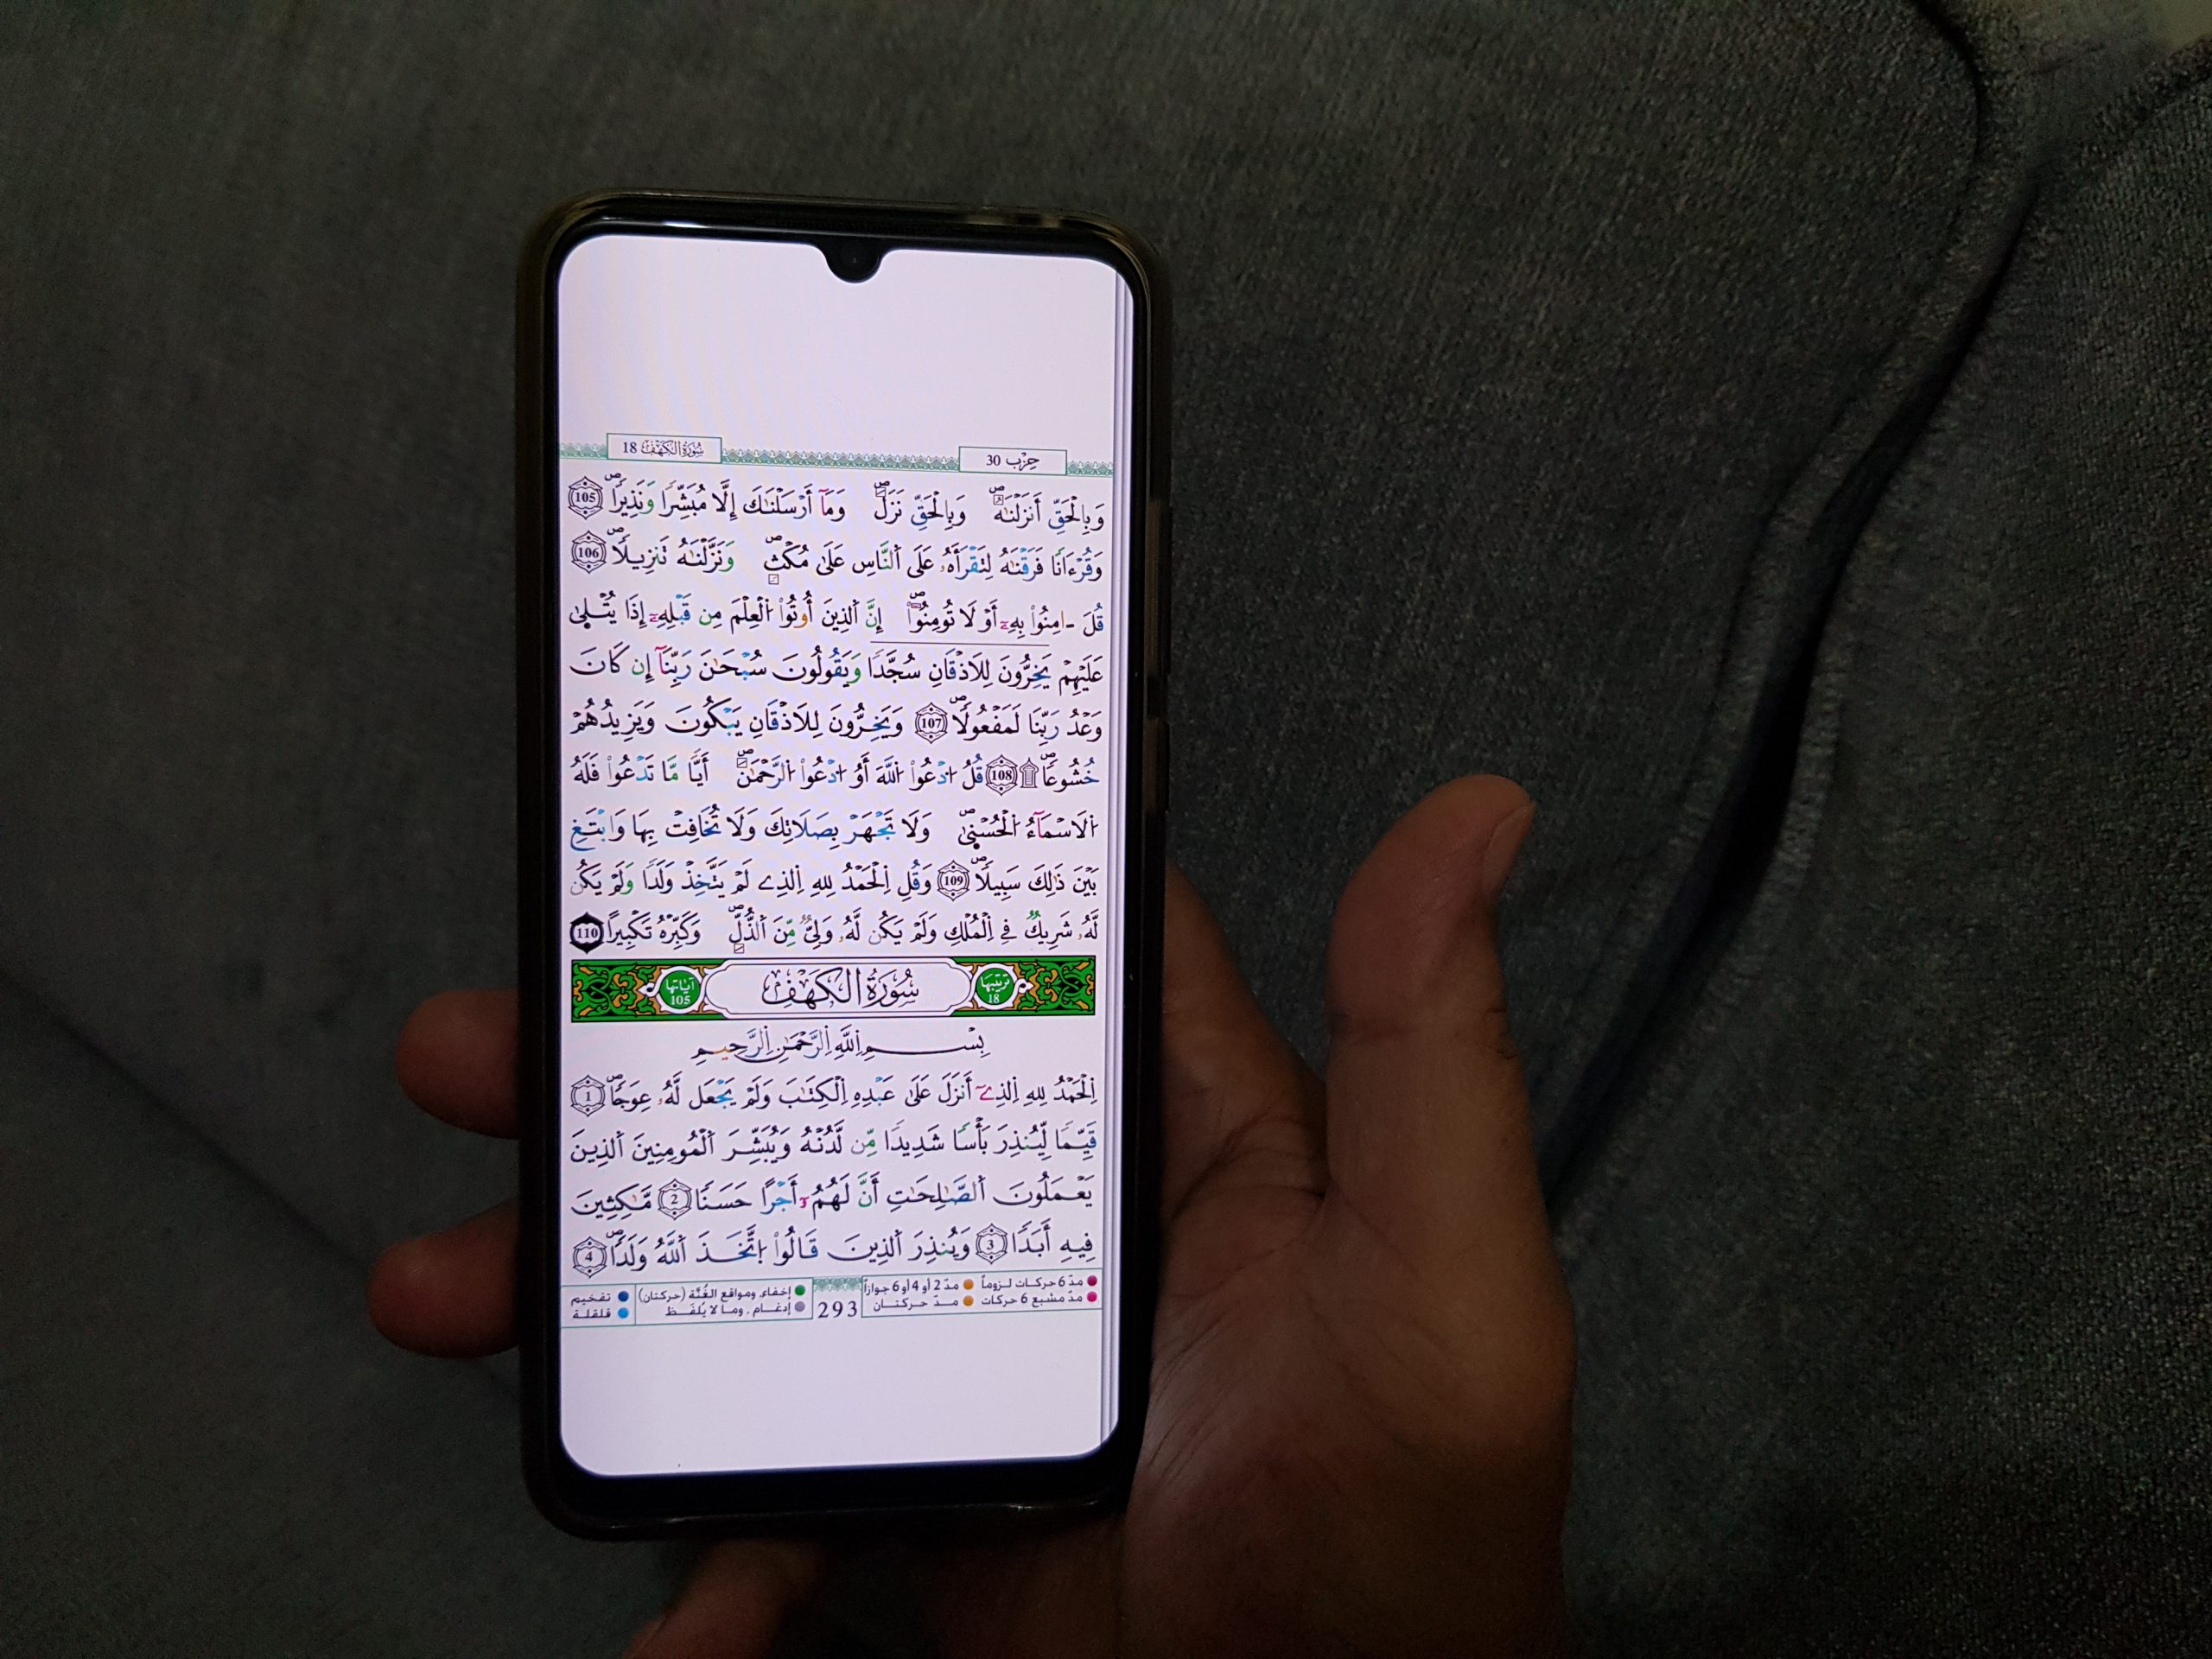 حِزْب 30
سُورَةُ الكَهْفِ 18
وَبِالْحَقِّ أَنزَلْنَٰهُۖ وَبِالْحَقِّ نَزَلَۖ وَمَآ أَرْسَلْنَٰكَ إِلَّا مُبَشِّرٗا وَنَذِيرٗاۖ 105
وَقُرْءَانٗا فَرَقْنَٰهُ لِتَقْرَأَهُۥ عَلَى اَلنَّاسِ عَلَىٰ مُكْثٖۖ وَنَزَّلْنَٰهُ تَنزِيلٗاۖ 106
قُلَ اٰمِنُواْ بِهِۦٓ أَوْ لَا تُومِنُوٓاْۖ إِنَّ اَلذِينَ أُوتُواْ اُلْعِلْمَ مِن قَبْلِهِۦٓ إِذَا يُتْلَىٰ
عَلَيْهِمْ يَخِرُّونَ لِلَاذْقَانِ سُجَّدٗا وَيَقُولُونَ سُبْحَٰنَ رَبِّنَآ إِن كَانَ
وَعْدُ رَبِّنَا لَمَفْعُولٗاۖ 107 وَيَخِرُّونَ لِلَاذْقَانِ يَبْكُونَ وَيَزِيدُهُمْ
خُشُوعٗاۖ ۩ 108 قُلُ اُدْعُواْ اُللَّهَ أَوُ اُدْعُواْ اُلرَّحْمَٰنَۖ أَيّٗا مَّا تَدْعُواْ فَلَهُ
اُلَاسْمَآءُ اُلْحُسْنَىٰۖ وَلَا تَجْهَرْ بِصَلَاتِكَ وَلَا تُخَافِتْ بِهَا وَابْتَغِ
بَيْنَ ذَٰلِكَ سَبِيلٗاۖ 109 وَقُلِ اِلْحَمْدُ لِلهِ اِلذِے لَمْ يَتَّخِذْ وَلَدٗا وَلَمْ يَكُن
لَّهُۥ شَرِيكٞ فِے اِلْمُلْكِ وَلَمْ يَكُن لَّهُۥ وَلِيّٞ مِّنَ اَلذُّلِّۖ وَكَبِّرْهُ تَكْبِيراٗ 110
تَرتيبُها 18 سُورَةُ الكَهْفِ آيَاتُها 105
بِسْمِ اِللَّهِ اِلرَّحْمَٰنِ اِلرَّحِيمِ
اِلْحَمْدُ لِلهِ اِلذِےٓ أَنزَلَ عَلَىٰ عَبْدِهِ اِلْكِتَٰبَ وَلَمْ يَجْعَل لَّهُۥ عِوَجٗاۖ 1
قَيِّمٗا لِّيُنذِرَ بَأْسٗا شَدِيدٗا مِّن لَّدُنْهُ وَيُبَشِّرَ اَلْمُومِنِينَ اَلذِينَ
يَعْمَلُونَ اَلصَّٰلِحَٰتِ أَنَّ لَهُمُۥٓ أَجْرًا حَسَنٗا 2 مَّٰكِثِينَ
فِيهِ أَبَدٗا 3 وَيُنذِرَ اَلذِينَ قَالُواْ اُتَّخَذَ اَللَّهُ وَلَدٗاۖ 4
مدّ 6 حركات لزوماً مدّ 2 أو 4 أو 6 جوازاً
مدّ مشبع 6 حركات مدّ حركتان
293
إخفاء، ومواقع الغُنَّة (حركتان) تفخيم
إدغام، وما لا يُلفَظ قلقلة